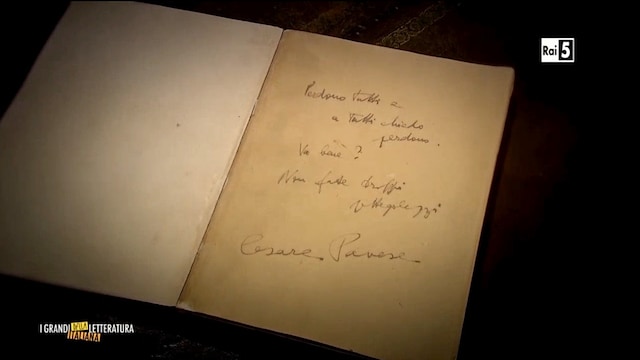 Rai 5
Perdono tutti e
a tutti chiedo
perdono.
Va bene?
Non fate troppi
pettegolezzi
Cesare Pavese
I GRANDI DELLA LETTERATURA
ITALIANA